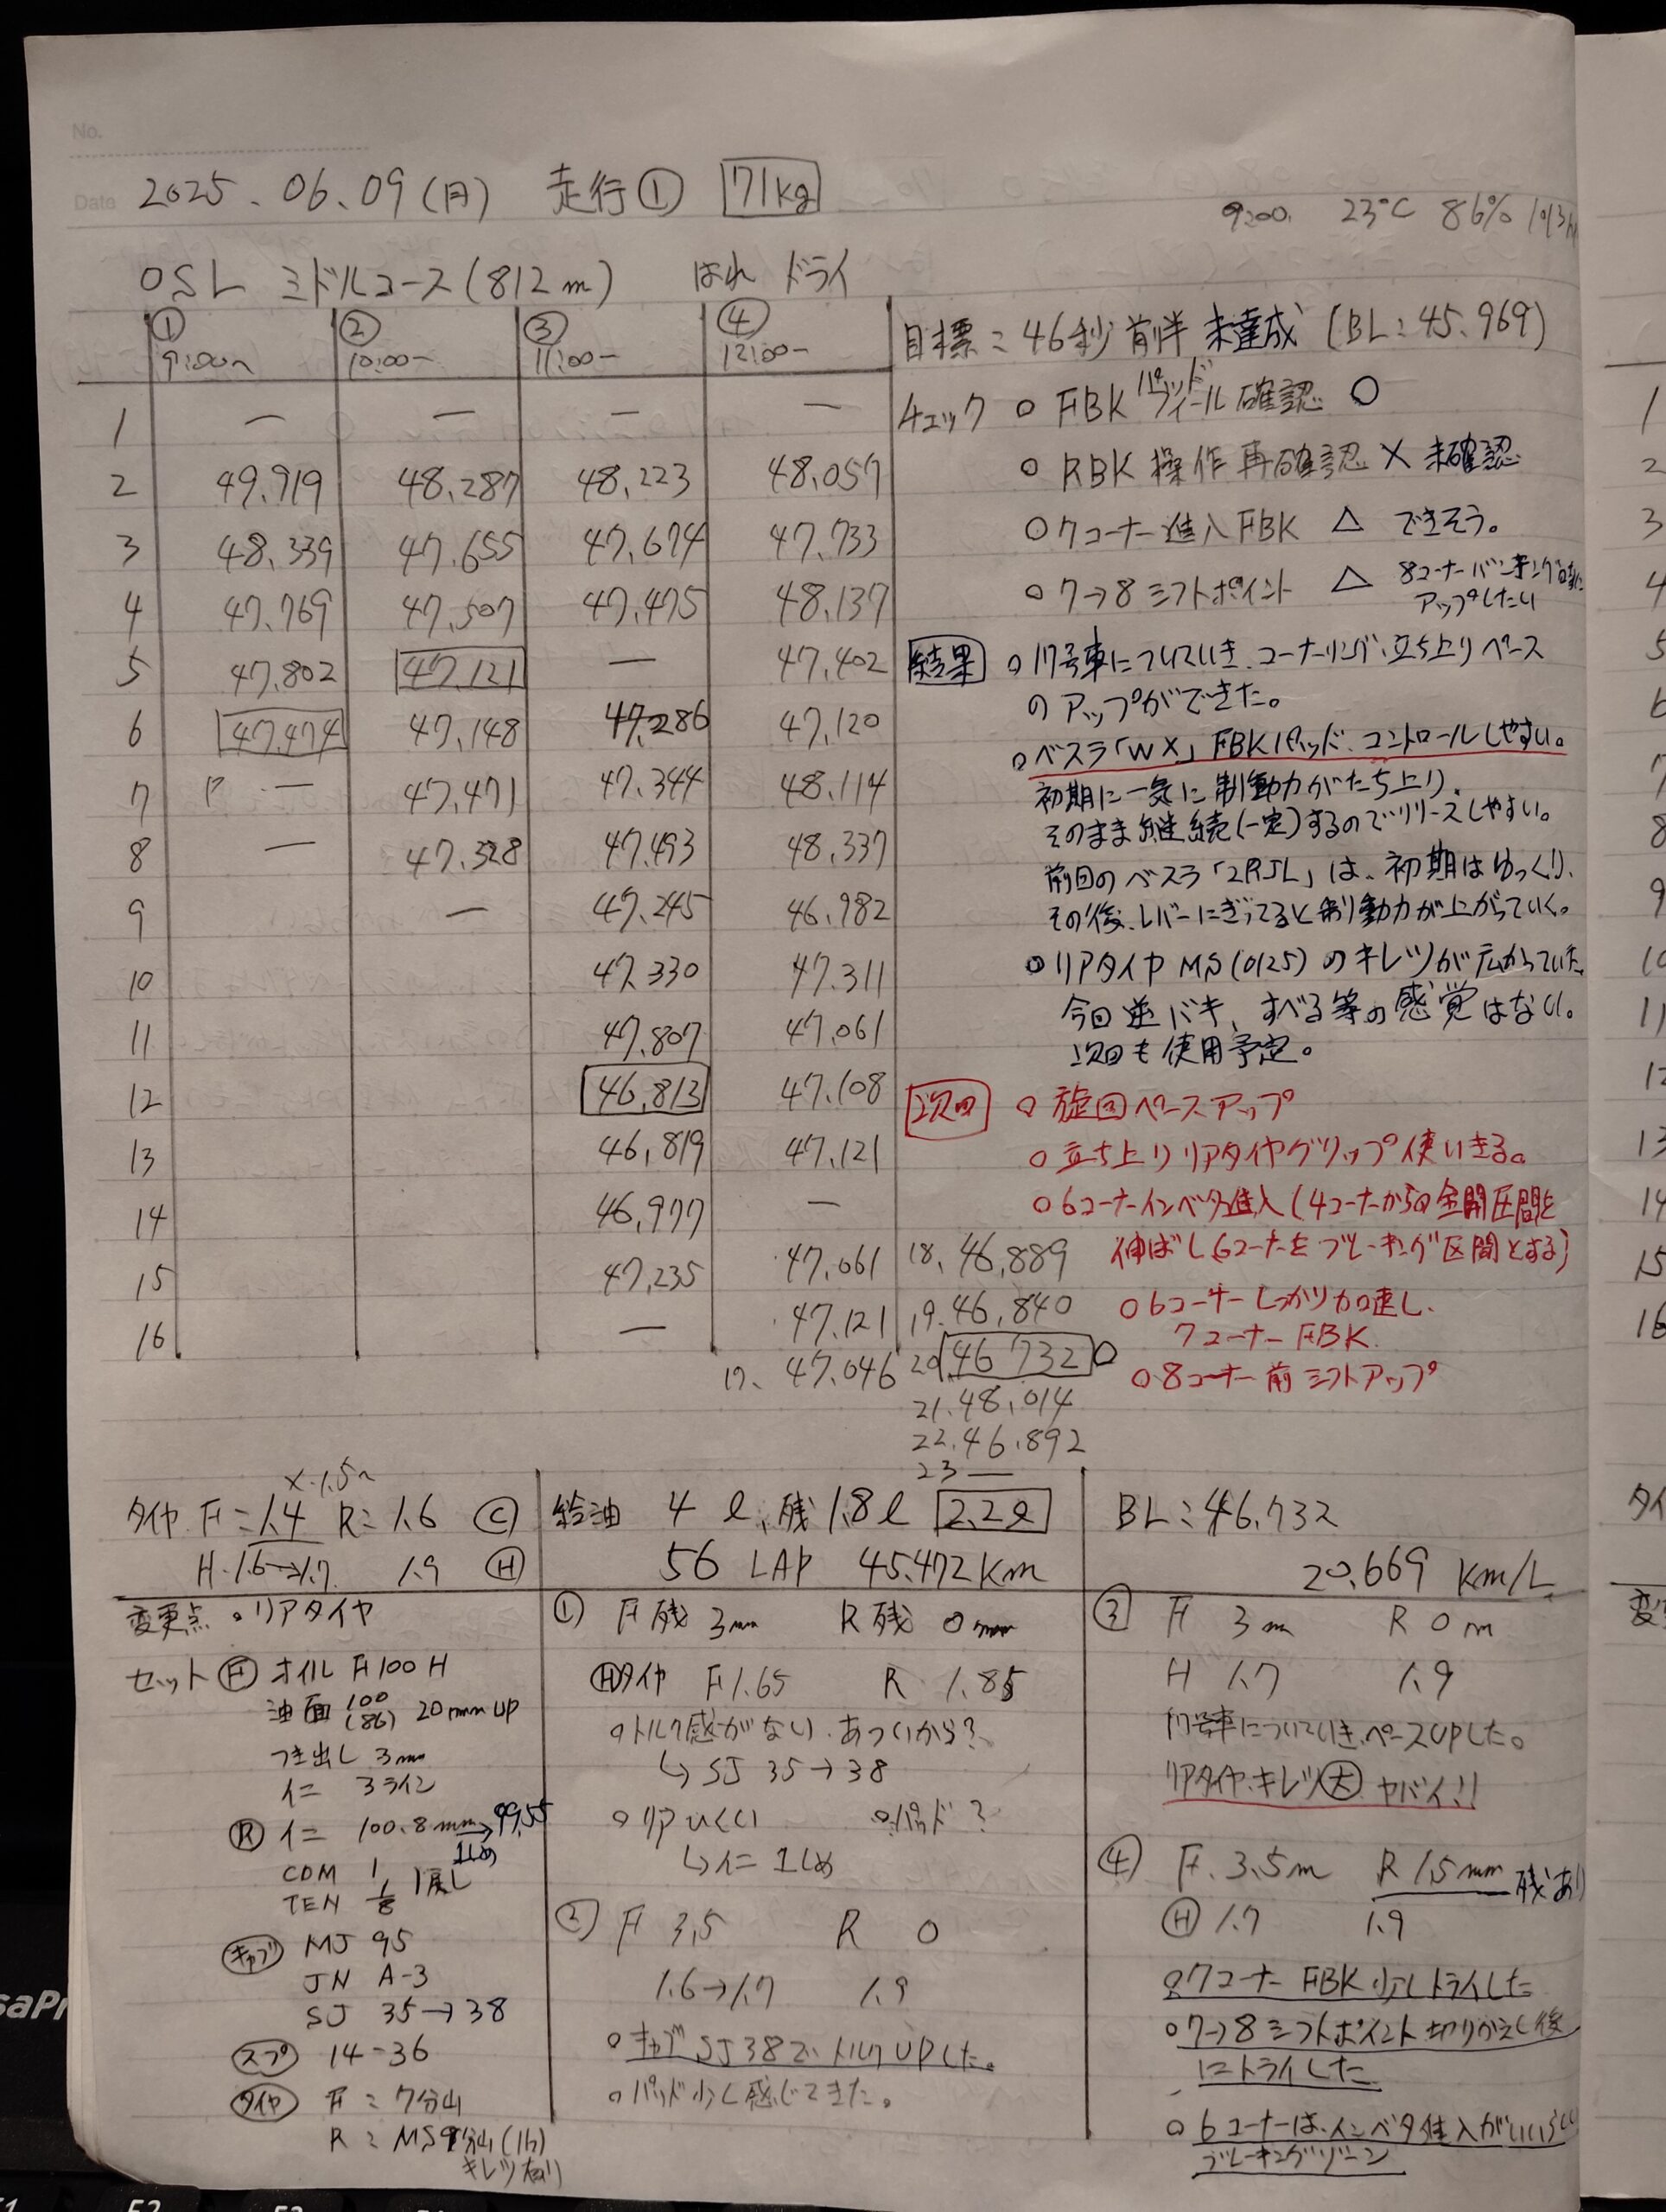 No.
Date 2025.06.09(月) 走行① 71kg
9:00. 23℃ 86%
OSL ミドルコース(812m) はれ ドライ
① ② ③ ④
9:00~ 10:00~ 11:00~ 12:00~
目標:46秒前半 未達成 (BL:45.969)
1 — — — —
2 49.919 48.287 48.223 48.057
3 48.339 47.655 47.674 47.733
4 47.769 47.507 47.475 48.137
5 47.802 47.121 — 47.402
6 47.474 47.148 47.286 47.120
7 P — 47.471 47.344 48.114
8 — 47.328 47.493 48.337
9 — 47.245 46.982
10 47.330 47.311
11 47.807 47.061
12 46.813 47.108
13 46.819 47.121
14 46.977 —
15 47.235 47.061
16 — 47.121
17. 47.046
18. 46.889
19. 46.840
20. 46.732 ○
21. 48.014
22. 46.892
23 —
チェック ○ FBK パッドフィール確認 ○
○ RBK 操作再確認 × 未確認
○ 7コーナー進入FBK △ できそう。
○ 7→8 シフトポイント △ 8コーナーバンキング
アップしたい
結果 ○ 17号車についていき、コーナーリング、立ち上りペース
のアップができた。
○ ベスラ「WX」FBKパッド、コントロールしやすい。
初期に一気に制動力がたち上り、
そのまま継続(一定)するのでリリースしやすい。
前回のベスラ「2RJL」は、初期はゆっくり、
その後、レバーにぎってると制動力が上がっていく。
○ リアタイヤ MS(0125)のキレツが広がっていた
今回逆バキ、すべる等の感覚はない。
次回も使用予定。
次回 ○ 旋回ペースアップ
○ 立ち上り リアタイヤグリップ使いきる。
○ 6コーナーインベタ進入(4コーナーからの全開区間を
伸ばし6コーナーをブレーキング区間とする)
○ 6コーナーしっかり加速し、
7コーナーFBK.
○ 8コーナー前シフトアップ
×1.5~
タイヤ F=1.4 R=1.6 Ⓒ
H.1.6→1.7 1.9 Ⓗ
給油 4ℓ、残1.8ℓ 2.2ℓ
56 LAP 45.472Km
BL:46.732
20.669 Km/L
変更点 ○リアタイヤ
セット Ⓕ オイル F100H
油面 100 (86) 20mm UP
つき出し 3mm
イニ 3ライン
Ⓡ イニ 100.8mm→99.55
1しめ
COM 1
TEN 1/8 1戻し
キャブ MJ 95
JN A-3
SJ 35→38
スプ 14-36
タイヤ F:7分山
R:MS 分山(1h)
キレツ有り
① F残 3mm R残 0mm
Ⓗタイヤ F1.65 R 1.85
○トルク感がない、あついから?
↳SJ 35→38
○リアひくい ○パッド?
↳イニ 1しめ
② F 3.5 R 0
1.6→1.7 1.9
○キャブSJ38で、トルクUPした。
○パッド少し感じてきた。
③ F 3m R 0m
H 1.7 1.9
17号車についていき、ペースUPした。
リアタイヤ、キレツ大 ヤバイ!!
④ F.3.5m R 1.5mm 残あり
Ⓗ 1.7 1.9
○7コーナーFBK 少しトライした
○7→8シフトポイント切りかえし後
にトライした
○6コーナーは、インベタ進入がいいらしい
ブレーキングゾーン